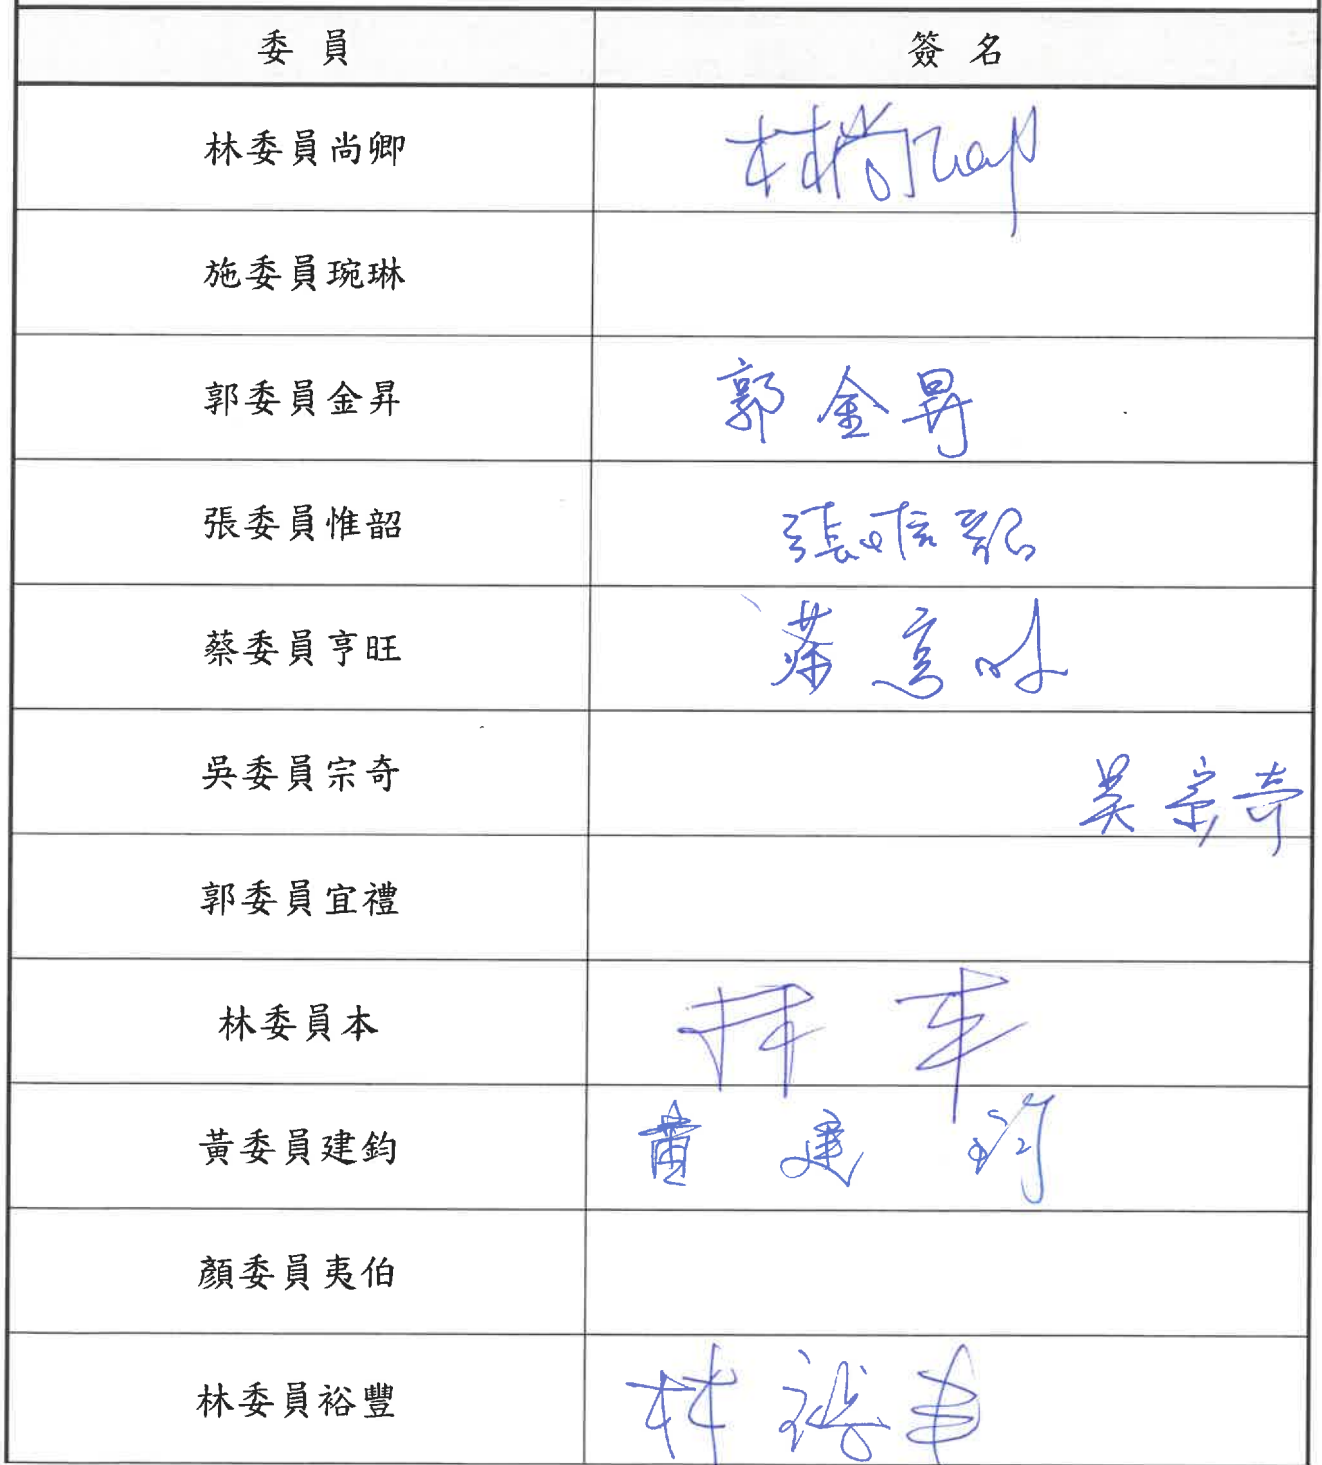 委員 簽名
林委員尚卿 林尚卿
施委員琬琳
郭委員金昇 郭金昇
張委員惟韶 張惟韶
蔡委員亨旺 蔡亨旺
吳委員宗奇 吳宗奇
郭委員宜禮
林委員本 林本
黃委員建鈞 黃建鈞
顏委員夷伯
林委員裕豐 林裕豐